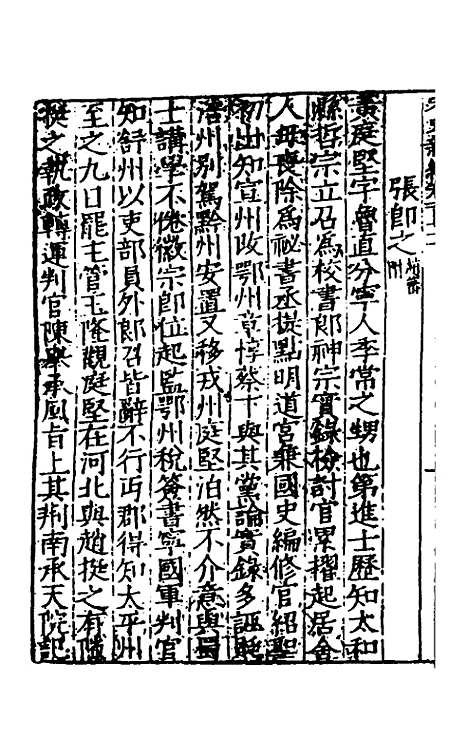 張即之
黃庭堅字魯直分寧人李常之甥也第進士歷知太和
縣哲宗立召為校書郎神宗實錄檢討官累擢起居舍
人母喪除為祕書丞提點明道宮兼國史編修官紹聖
初出知宣州改鄂州章惇蔡卞與其黨論實錄多誣貶
涪州別駕黔州安置又移戎州庭堅泊然不介意與蜀
士講學不倦徽宗即位起監鄂州稅簽書寧國軍判官
知舒州以吏部員外郎召皆辭不行丐郡得知太平州
至之九日罷主管玉隆觀庭堅在河北與趙挺之有隙
挺之執政轉運判官陳舉承風旨上其荆南承天院記